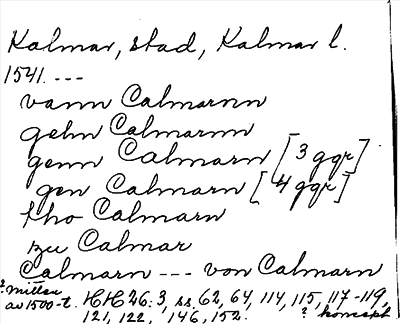 Kalmar, stad, Kalmar l.
1541. ---
vann Calmarnn
gehn Calmarnn
genn Calmarn [3 ggr]
gen Calmarn [4 ggr]
tho Calmarn
zu Calmar
Calmarn --- von Calmarn
? mitten
av 1500-t. HH 26: 3, ss. 62, 64, 114, 115, 117-119,
121, 122, 146, 152. ? koncept